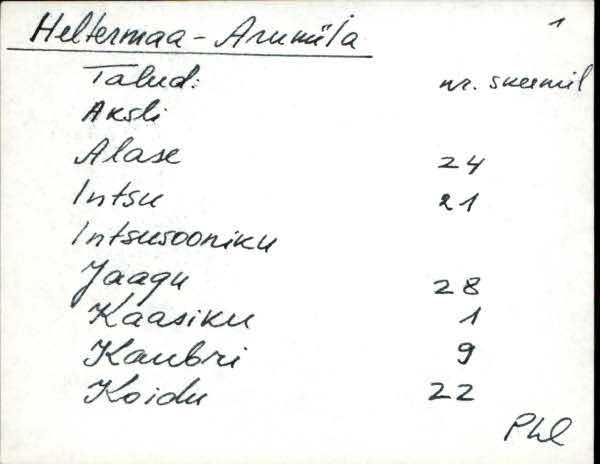 Heltermaa - Aruküla 1
Talud: nr. skeemil
Aksli
Alase 24
Intsu 21
Intsusooniku
Jaagu 28
Kaasiku 1
Kaubri 9
Koidu 22
Phl